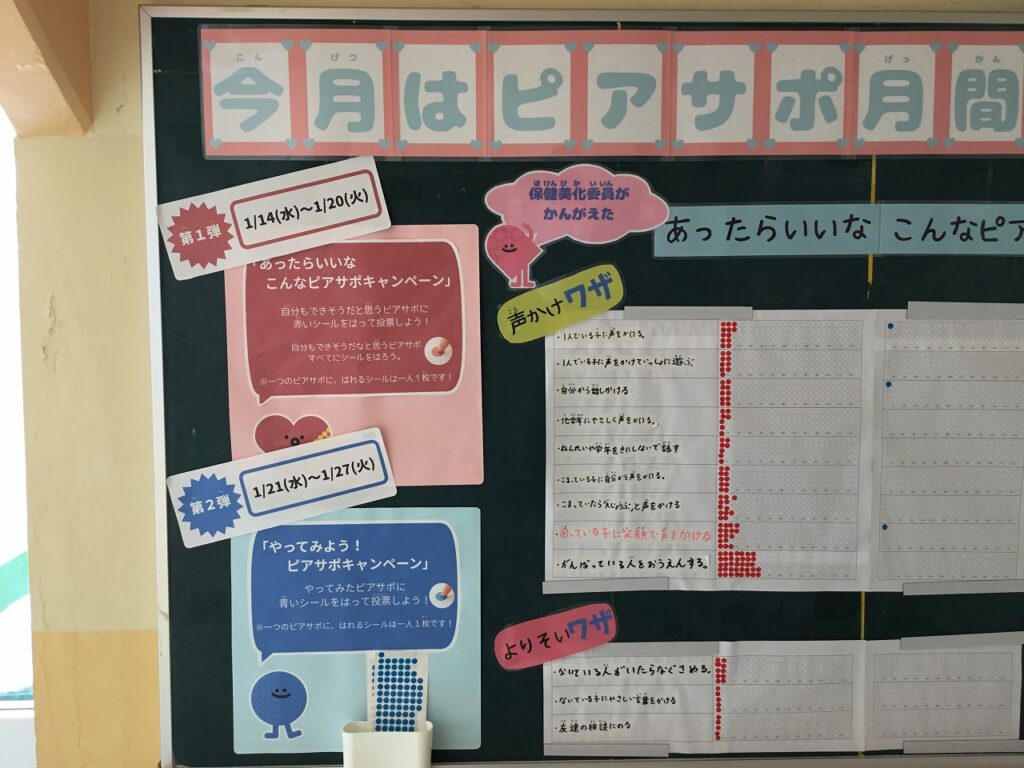 今月はピアサポ月間
第1弾
1/14(水)～1/20(火)
「あったらいいな
こんなピアサポキャンペーン」
自分もできそうだと思うピアサポに
赤いシールをはって投票しよう！
自分もできそうだなと思うピアサポ
すべてにシールをはろう。
※一つのピアサポに、はれるシールは一人1枚です！
第2弾
1/21(水)～1/27(火)
「やってみよう！
ピアサポキャンペーン」
やってみたピアサポに
青いシールをはって投票しよう！
※一つのピアサポに、はれるシールは一人1枚です！
保健美化委員が
かんがえた
あったらいいな こんなピア
声かけワザ
・1人でいる子に声をかける。
・1人でいる子に声をかけていっしょに遊ぶ
・自分から話しかける
・他学年にやさしく声をかける。
・ねんれいや学年をきにしないで話す
・こまっている子に自分から声をかける。
・こまっていたら「大じょうぶ」と声をかける
・困っている子に笑顔で声をかける
・がんばっている人をおうえんする。
よりそいワザ
・ないている人がいたらなぐさめる。
・ないている子にやさしい言葉をかける
・友達の相談にのる